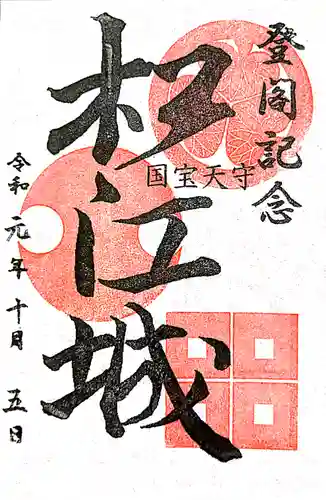 登閣記念
松江城
国宝天守
令和元年十月五日